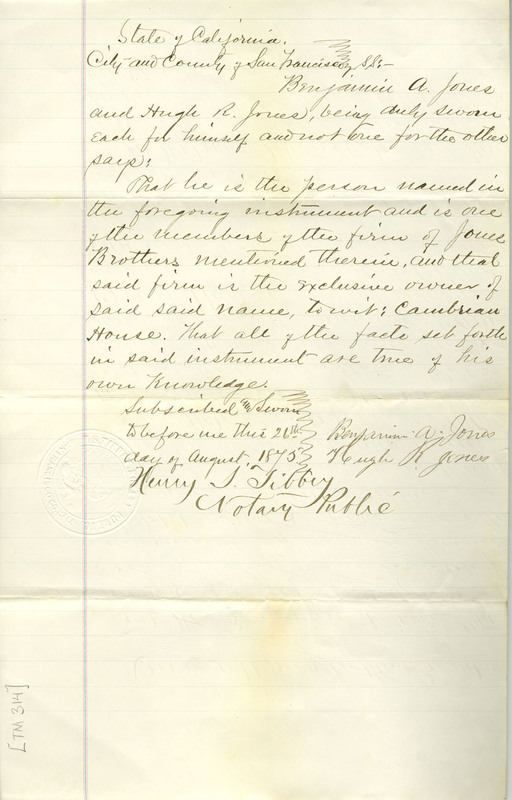 State of California.
City and County of San Francisco S.S:-
Benjamin A. Jones
and Hugh R. Jones, being duly sworn
each for himself and not one for the other
says;
That he is the person named in
the foregoing instrument and is one
of the members of the firm of Jones
Brothers mentioned therein, and that
said firm is the exclusive owner of
said said name, to wit; Cambrian
House. That all of the facts set forth
in said instrument are true of his
own Knowledge.
Subscribed and Sworn
to before me this 26th
day of August, 1875
Benjamin A. Jones
Hugh R Jones
Henry S. Tibbey
Notary Public
[TM 314]